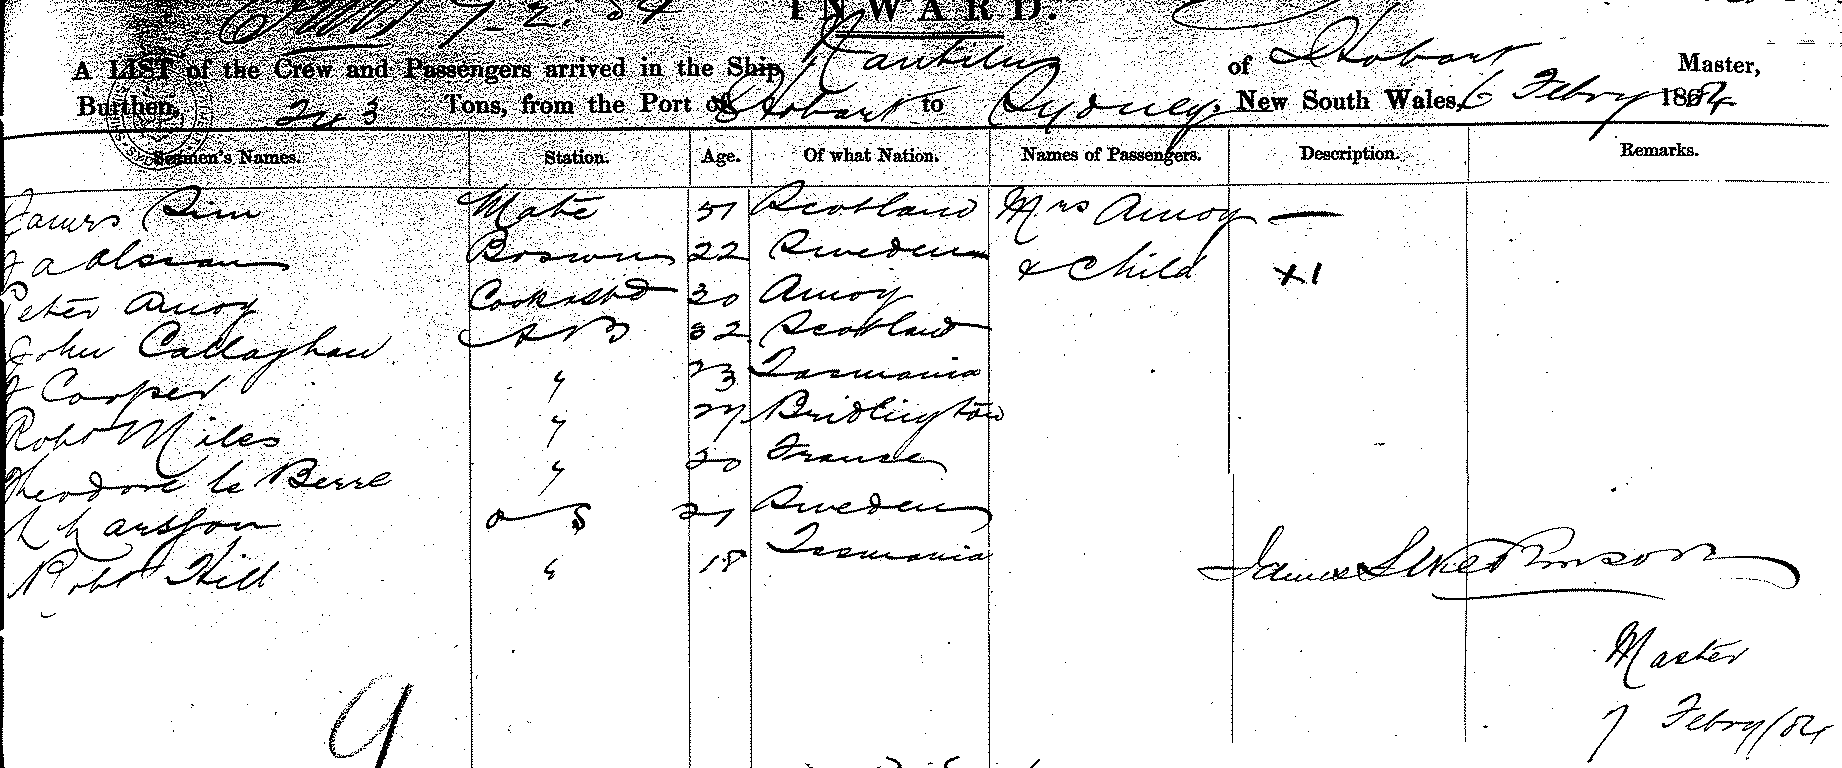 9.2.84
INWARD.
A LIST of the Crew and Passengers arrived in the Ship Nautilus of Hobart Master,
Burthen, 243 Tons, from the Port of Hobart to Sydney New South Wales, 6 Febry 1884
Seamen's Names. Station. Age. Of what Nation. Names of Passengers. Description. Remarks.
James Sim Mate 51 Scotland Mrs Amoy —
J A Olsean Boswn 22 Sweden & Child +1
Peter Amoy Cook & Std 30 Amoy
John Callaghan AB 32 Scotland
J Cooper " 23 Tasmania
Robt Miles " 27 Bridlington
Theodore le Berre " 20 France
Larsson O S 21 Sweden
Robt Hill " 18 Tasmania
James
Master
7 Febry/84
9